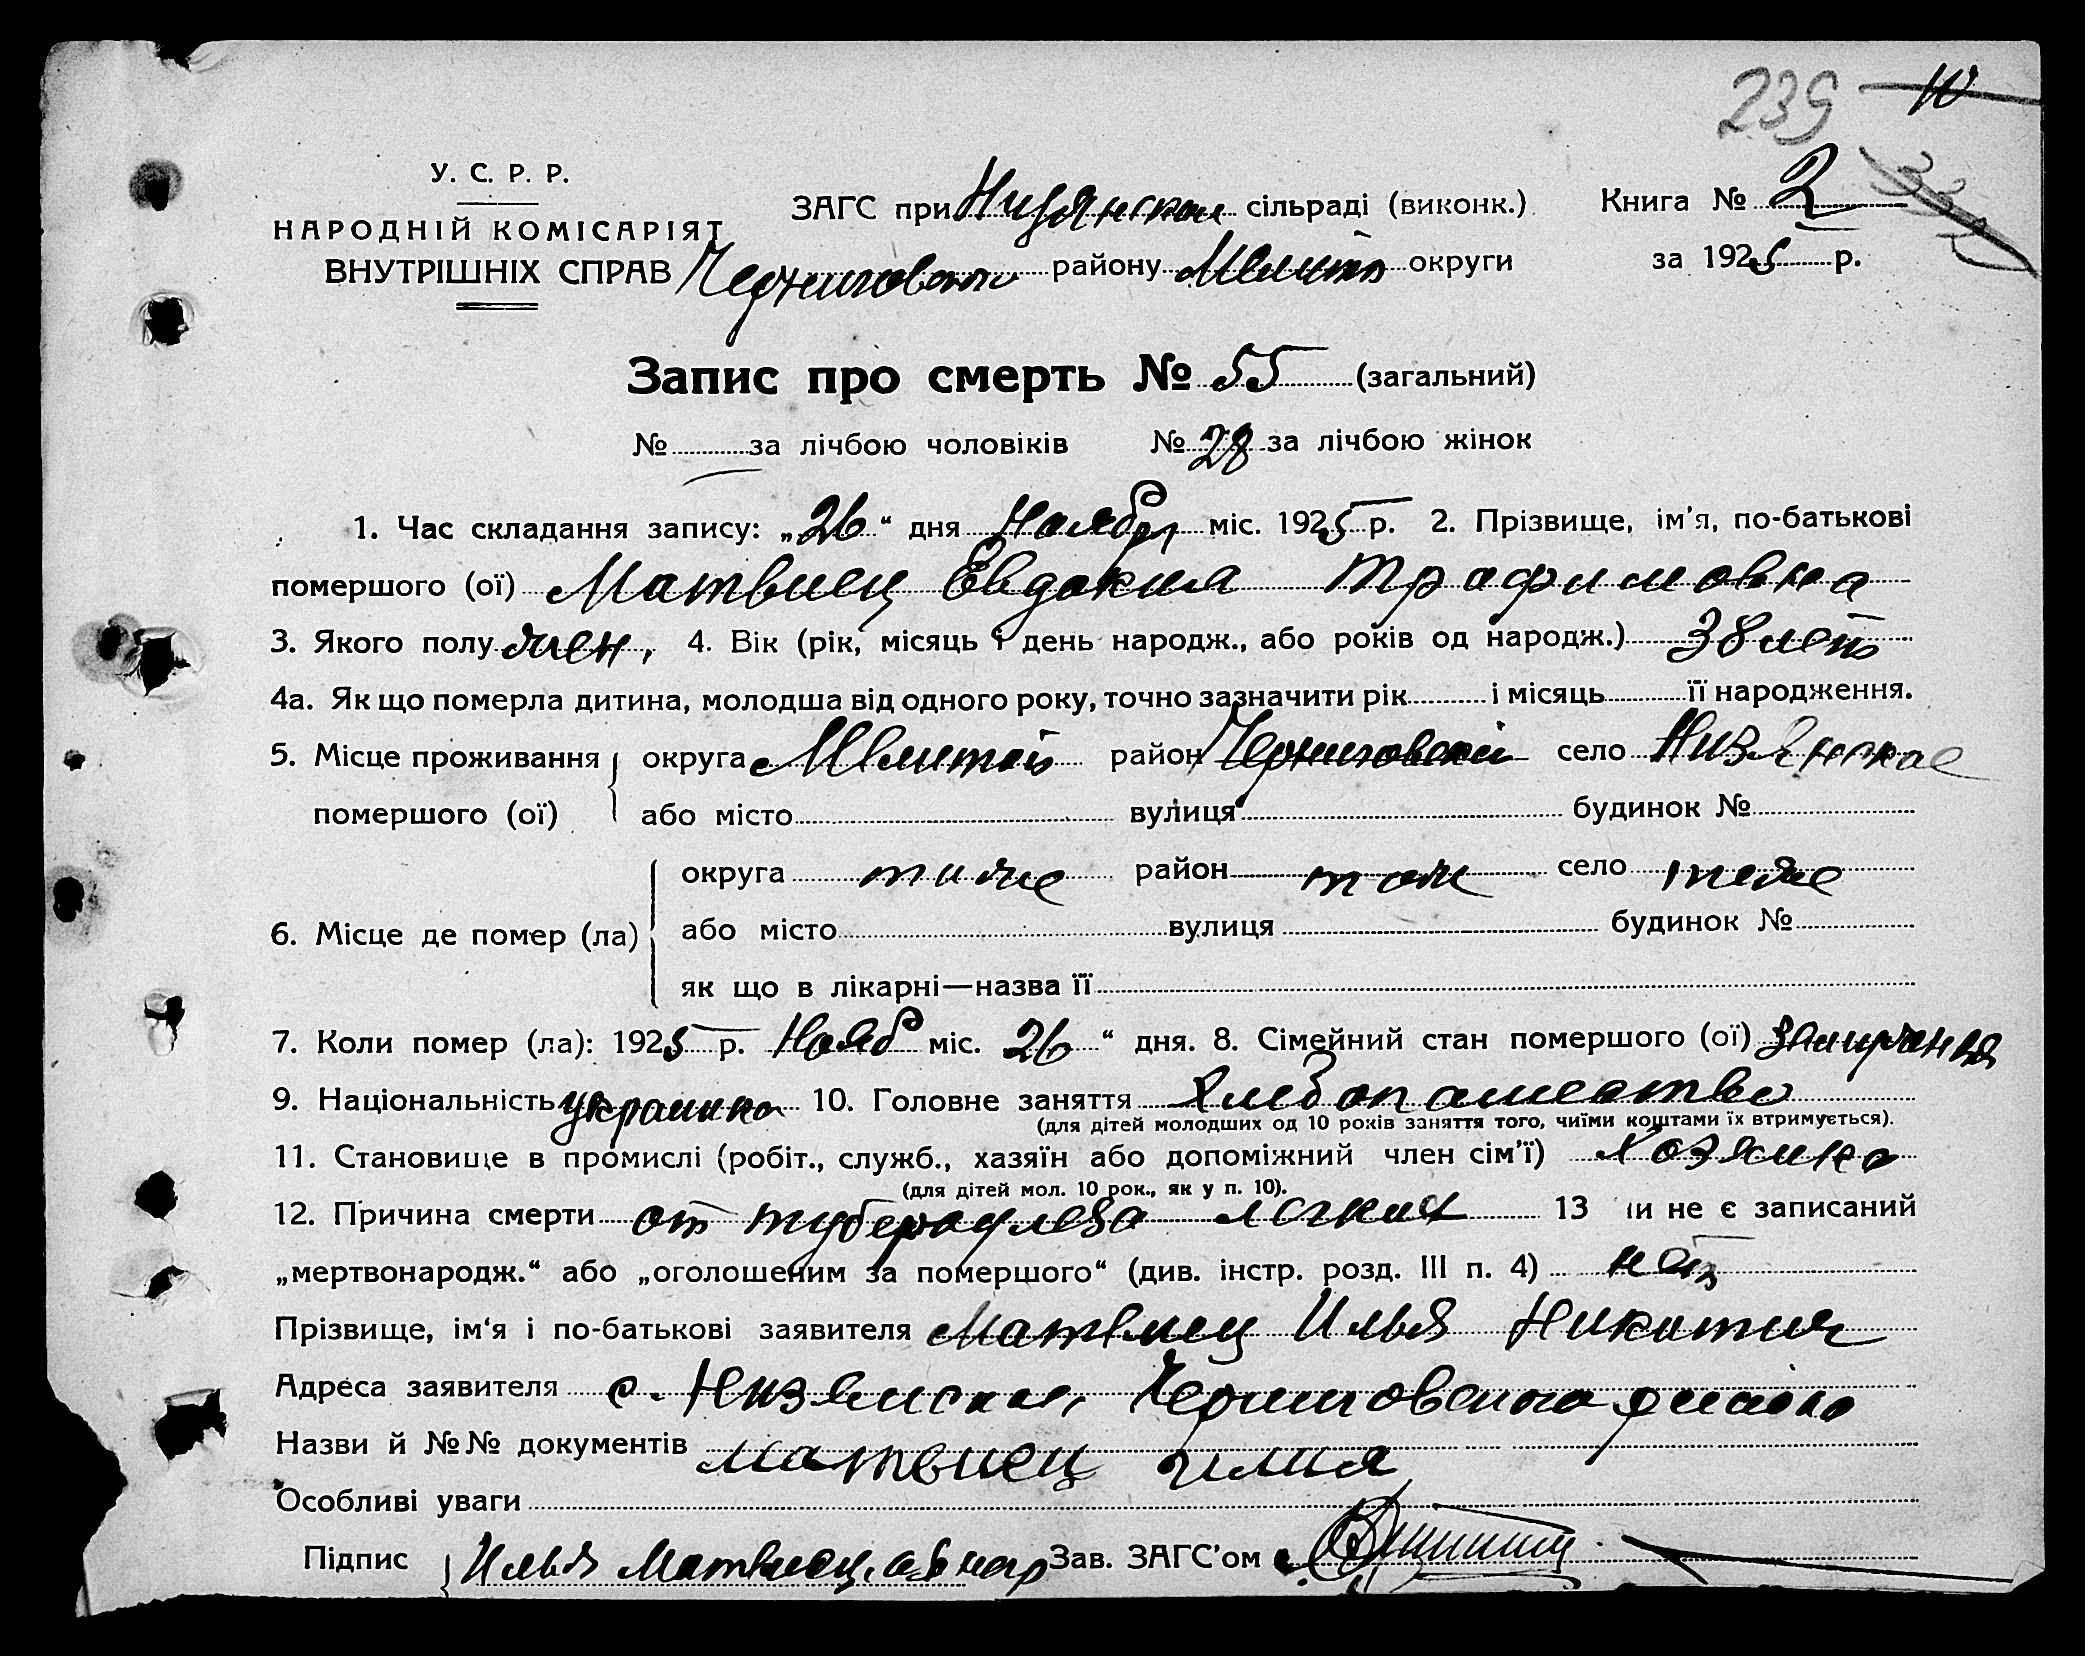 239 10
У. С. Р. Р.
НАРОДНІЙ КОМІСАРІЯТ
ВНУТРІШНІХ СПРАВ
ЗАГС при Низянском сільраді (виконк.) Книга № 2
Черниговского району Мелит округи за 1925 р.
Запис про смерть № 55 (загальний)
№ за лічбою чоловіків № 28 за лічбою жінок
1. Час складання запису: „26“ дня Ноября міс. 1925 р. 2. Прізвище, ім'я, по-батькові
помершого (ої) Матвиец Евдокия Трофимовна
3. Якого полу жен, 4. Вік (рік, місяць і день народж., або років од народж.) 38 лет
4а. Як що померла дитина, молодша від одного року, точно зазначити рік і місяць її народження.
5. Місце проживання округа Мелитоп район Черниговский село Низянское
помершого (ої) або місто вулиця будинок №
округа тоже район тож село тоже
6. Місце де помер (ла) або місто вулиця будинок №
як що в лікарні—назва її
7. Коли помер (ла): 1925 р. Нояб міс. 26“ дня. 8. Сімейний стан помершого (ої)
9. Національність украинка 10. Головне заняття Хлебопашество
(для дітей молодших од 10 років заняття того, чиїми коштами їх втримується).
11. Становище в промислі (робіт., служб., хазяїн або допоміжний член сім'ї) Хозяйка
(для дітей мол. 10 рок., як у п. 10).
12. Причина смерти от туберкулеза легких 13 чи не є записаний
„мертвонародж.“ або „оголошеним за помершого“ (див. інстр. розд. III п. 4) нет
Прізвище, ім'я і по-батькові заявителя Матвиец Илья Никитич
Адреса заявителя с. Низянское, Черниговского района
Назви й №№ документів Матвиец Илия
Особливі уваги
Підпис Илья Матвиец, Зав. ЗАГС'ом